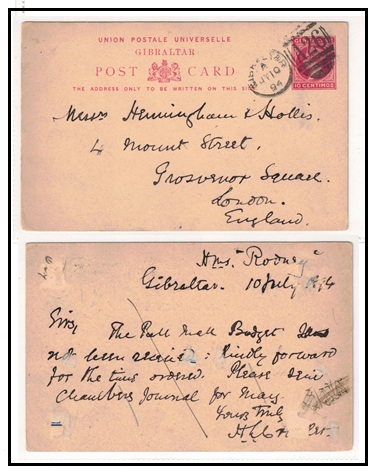 UNION POSTALE UNIVERSELLE
GIBRALTAR
POST CARD
THE ADDRESS ONLY TO BE WRITTEN ON THIS SI
GIBRALTAR
A
JY 10
94
A26
10 CENTIMOS
Messrs Henningham & Hollis.
4 Mount Street.
Grosvenor Square.
London.
England.
Hms "Rodney"
Gibraltar. 10 July 1894
Sirs,
The Pall Mall Budget has
not been received: kindly forward
for the time ordered. Please send
Chambers Journal for May.
Yours truly